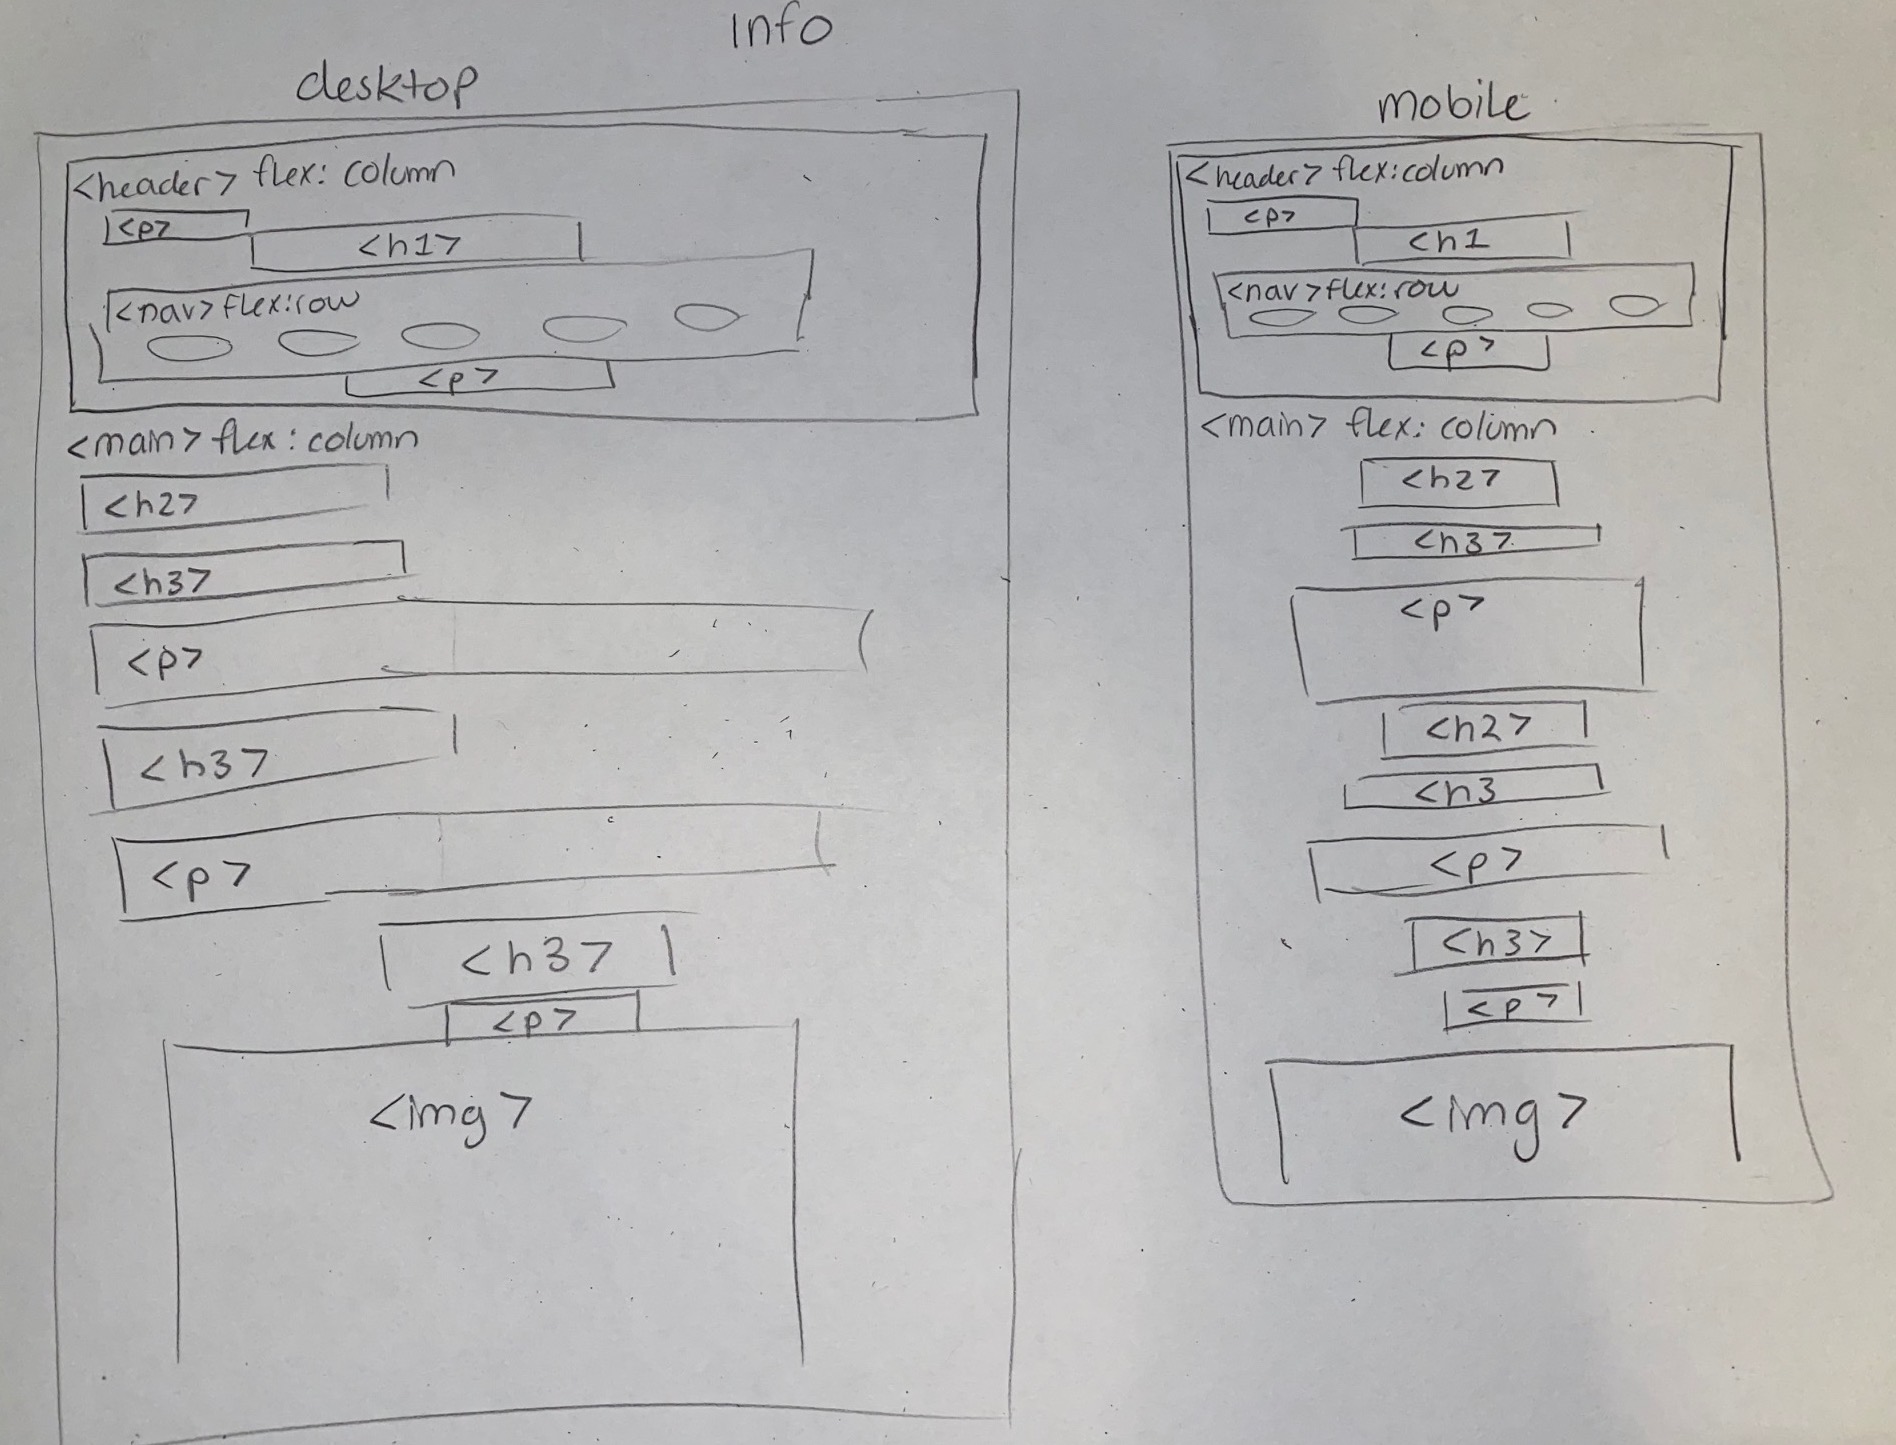 Info
desktop
<header> flex: column
<p>
<h1>
<nav> flex:row
<p>
<main> flex: column
<h2>
<h3>
<p>
<h3>
<p>
<h3>
<p>
<img>
mobile
<header> flex:column
<p>
<h1
<nav> flex:row
<p>
<main> flex: column
<h2>
<h3>
<p>
<h2>
<h3
<p>
<h3>
<p>
<img>